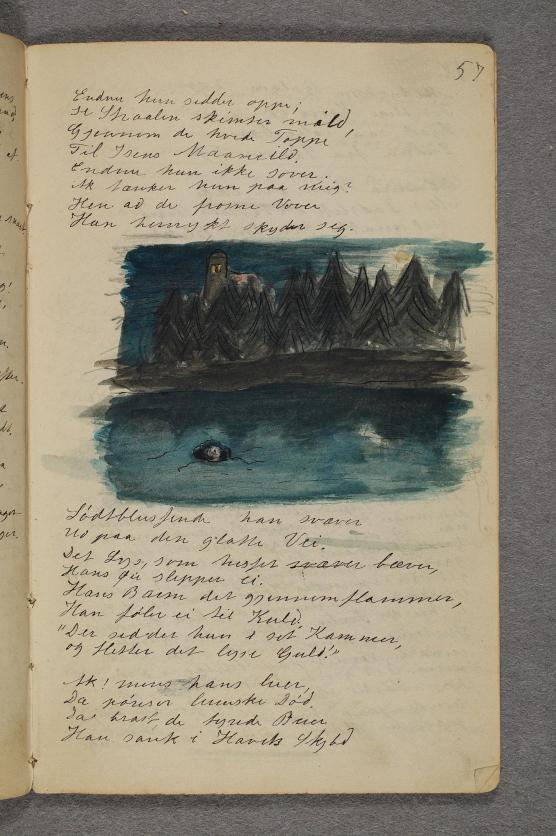 57
Endnu hun sidder oppe;
Se Straalen skimter mild,
Gjennem de hvide Toppe
Til Isens Maaneild.
Endnu hun ikke sover.
Ak tænker hun paa mig?
Hen ad de frosne Vover
Han henrykt skyder seg.
Sødtblussende han svæver
ud paa den glatte Vei.
Det Lys, som hisset svæver bæver,
Hans Øie slipper ei.
Hans Barm det gjennemflammer,
Han føler ei til Kuld.
"Der sidder hun i sit Kammer,
og fletter det lyse Guld."
Ak! mens hans
Da lumske Død.
Da brast de Buer
Han sank i Havets Skjød